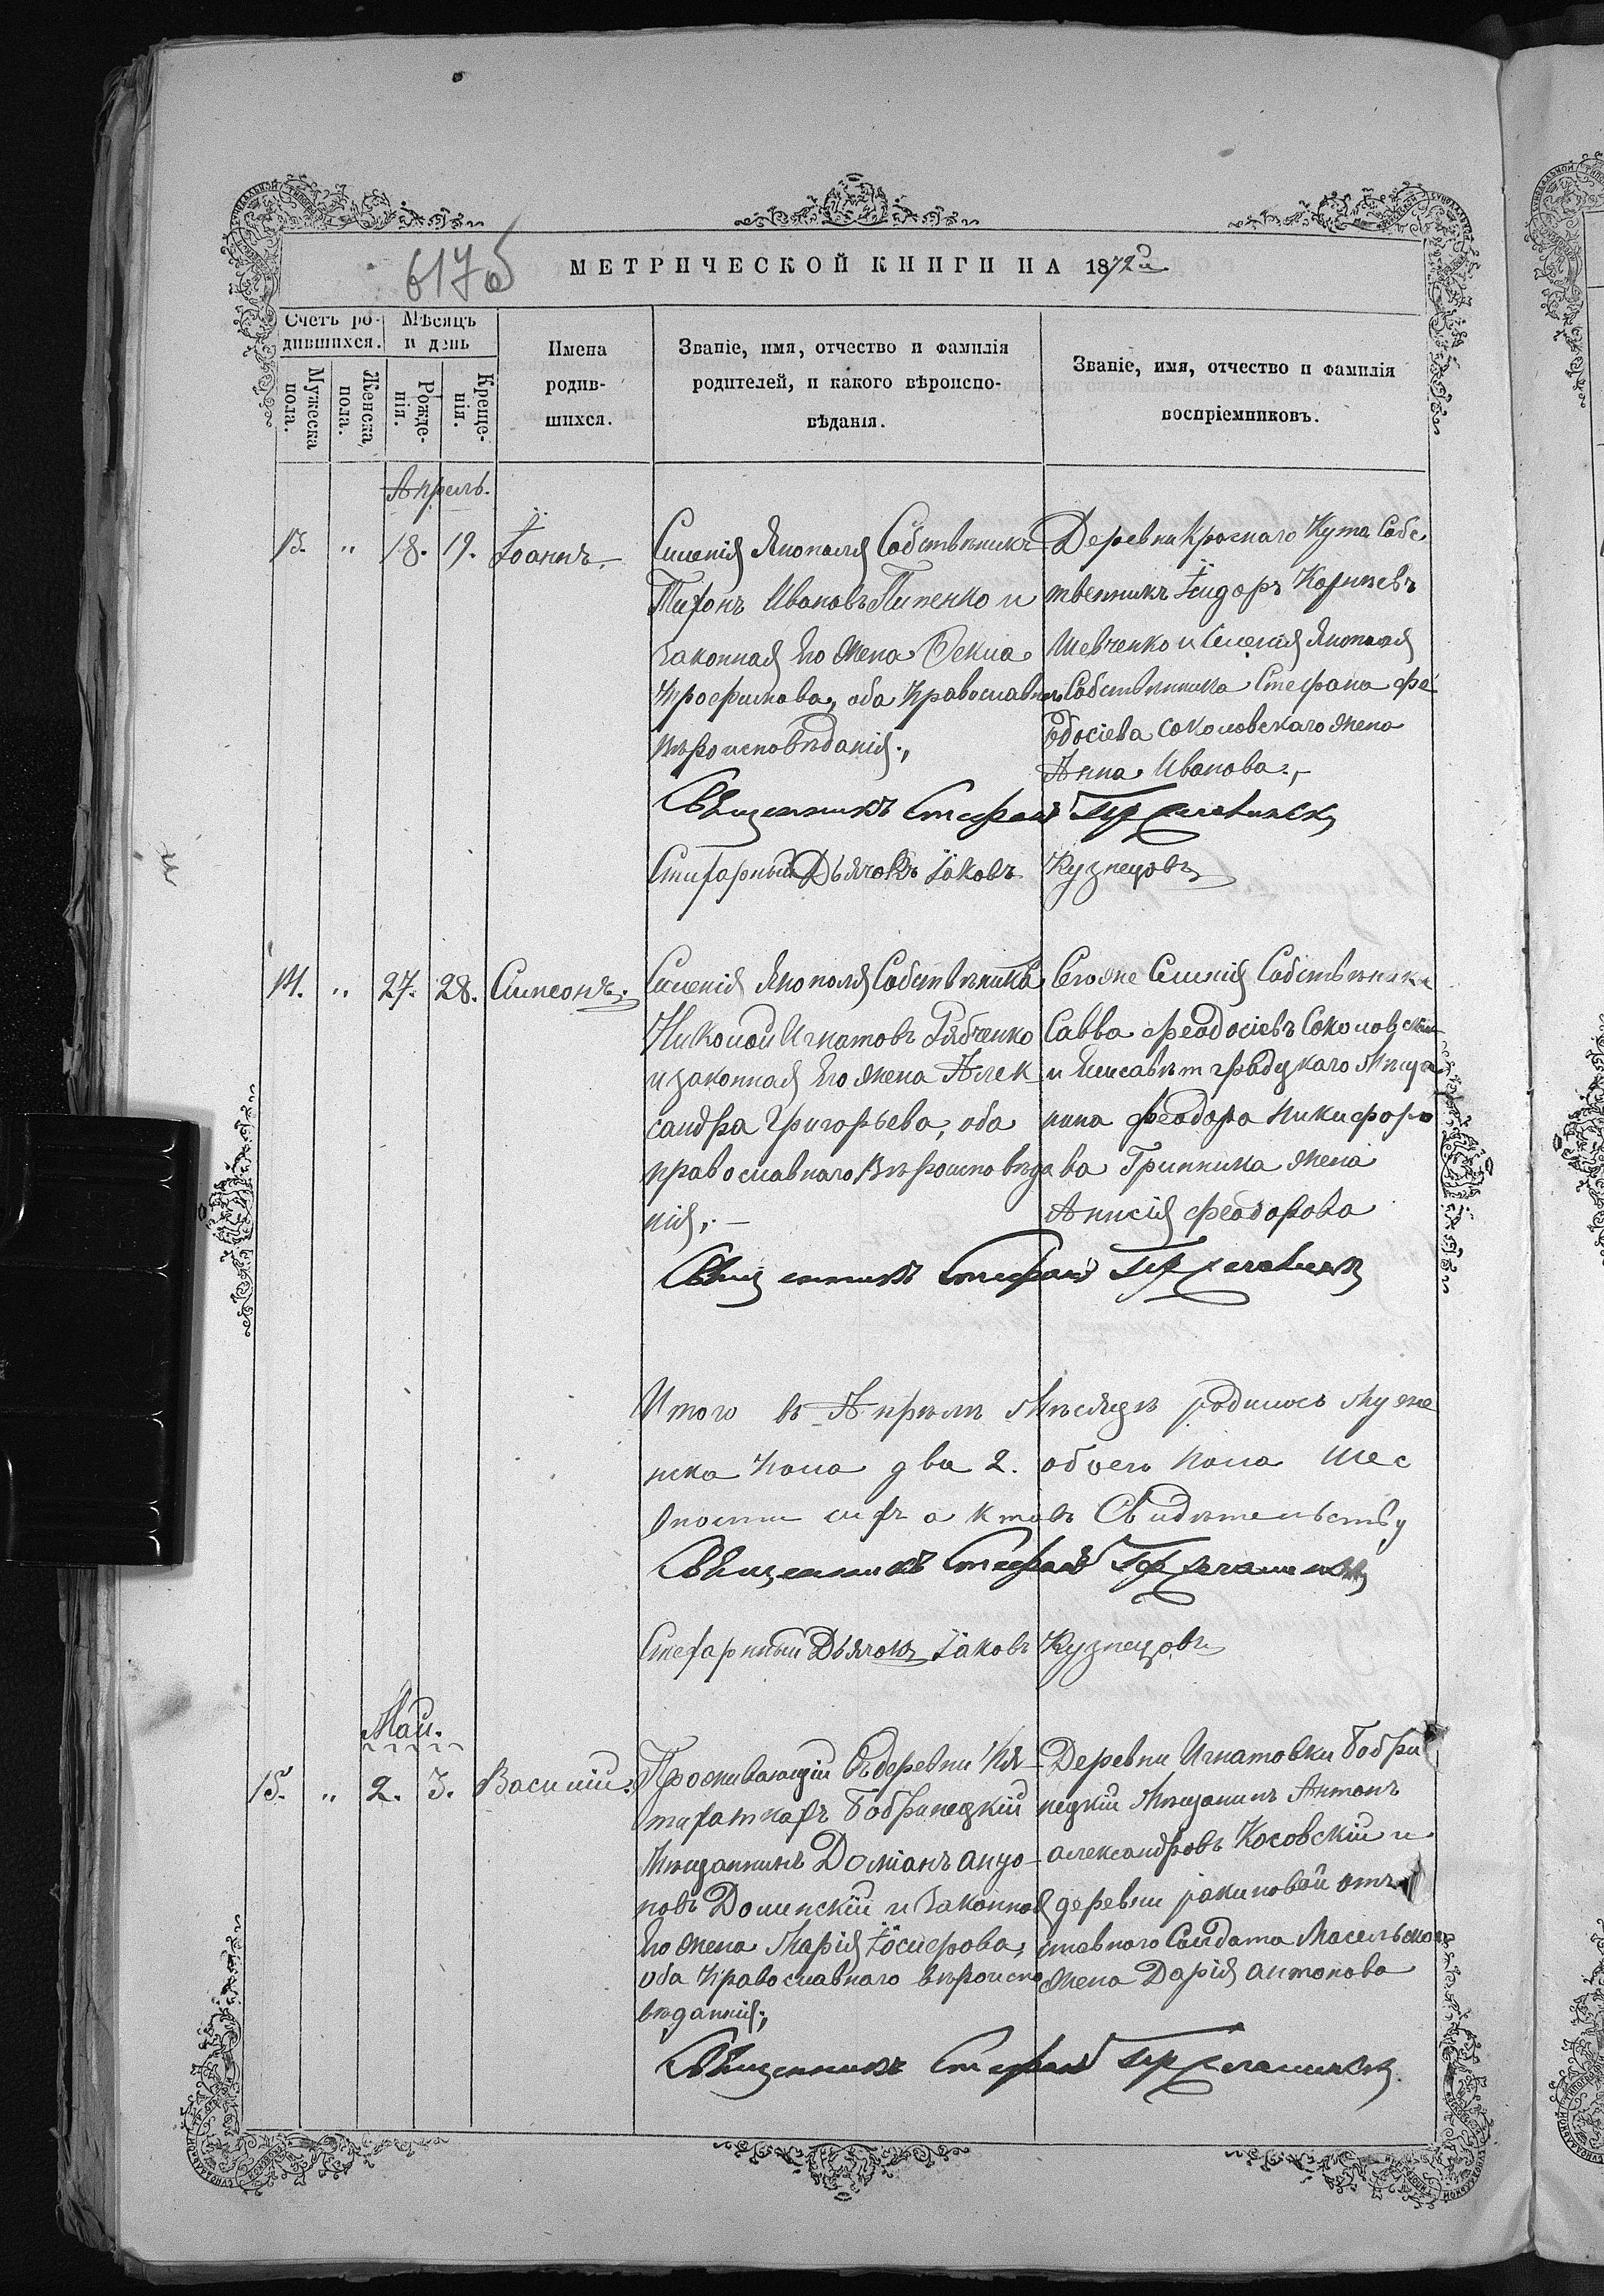 617об
МЕТРИЧЕСКОЙ КНИГИ НА 1872й
Счетъ ро-
дившихся.
Мѣсяцъ
и день
Мужеска
пола.
Женска,
пола.
Рожде-
нія.
Креще-
нія.
Имена
родив-
шихся.
Званіе, имя, отчество и фамилія
родителей, и какого вѣроиспо-
вѣданія.
Званіе, имя, отчество и фамилія
воспріемниковъ.
Апрель.
13. " 18. 19. Іоаннъ.
Селенія Янополя Собствѣнникъ
Тифонъ Ивановъ Пипенко и
законная Его Жена Фекла
Трофимова, оба Православнаго
вѣроисповѣданія.,
Деревни Краснаго Кута Собс
твенникъ Ісидоръ Карпѣевъ
Шевченко и Селенія Янополя
Собствѣнника Стефана Фе
одосіева Соколовскаго Жена
Анна Иванова.,
Священникъ Стефанъ
Стихарный Дьячокъ Іаковъ Кузнецовъ
14. " 27. 28. Симеонъ.
Селенія Янополя Собствѣнникъ
Николай Игнатовъ Рябченко
и законная Его Жена Алек
сандра Григорьева, оба
православнаго Вѣроисповѣда
нія.
Тогоже Селенія Собствѣнникъ
Савва Феодосіевъ Соколовскій
и Елисаветградскаго Мѣща
нина Феодора Никифоро
ва Гринника Жена
Анисія Феодорова
Священникъ Стефанъ
Итого въ Апрѣлѣ Мѣсяцѣ родилось Муже
ска Пола два 2. обоего Пола
актовъ Свидѣтельству
Священникъ Стефанъ
Стихарный Дьячокъ Іаковъ Кузнецовъ
Май.
15. " 2. 3. Василій.
Проживающій въ деревни
Бобринецкій
Мѣщанинъ Даміанъ
новъ Долинскій и Законная
Его Жена Марія Іосифова,
оба Православнаго вѣроиспо
вѣданнія,
Деревни Игнатовки Бобри
нецкій Мѣщанинъ Антонъ
Александровъ Косовскій и
деревни Ракиповой отъ
ставнаго Салдата
Жена Дарія Антонова
Священникъ Стефанъ